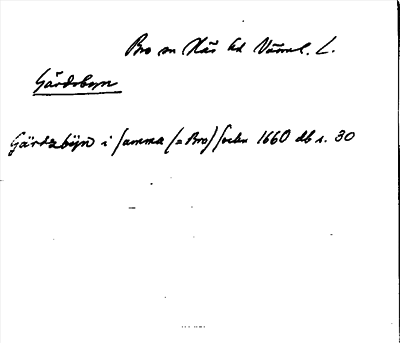 Bro sn Näs hd Värml. L.
Gärdsbyn
Gärdzbÿn i samma (=Bro) Sochn 1660 db s. 30